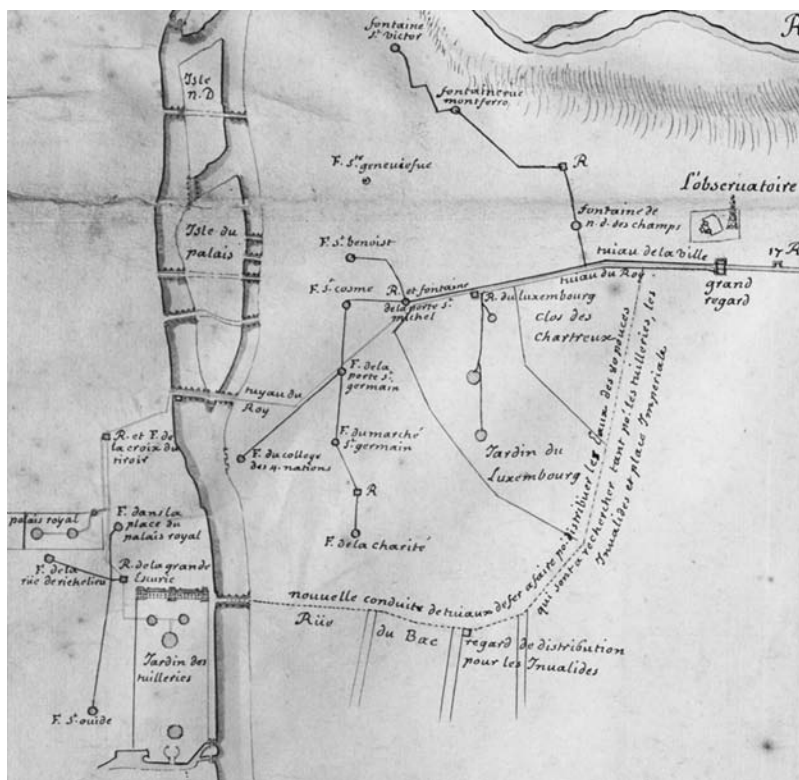 fontaine
S.t victor
Isle
n. D
fontaine rue
montferro.
R
F. S.te geneviefue
R
L'observatoire
fontaine de
n. d. des champs
Isle du
palais
F. S.t benoist
tuiau de la ville
17 R
tuiau du Roy
grand
regard
F. S.t cosme
R. et fontaine
de la porte S.t
michel
R. du luxembourg
Clos des
Chartreux
F. de la
porte S.t
germain
tuyau du
Roy
R. et F. de
la croix du
tiroir
F. du college
des 4. nations
F. du marché
S.t germain
Jardin du
Luxembourg
R
palais royal
F. dans la
place du
palais royal
F. de la charité
F. de la
rüe de richelieu
R. de la grande
Escurie
nouvelle conduite de tuiaux de fer a faire po.r distribuer les Eaux des 80 pouces
qui sont a rechercher tant po.r les tuilleries, les
Invalides et place Imperiale
Rüe
du Bac
regard de distribution
pour les Invalides
Jardin des
tuilleries
F. S.t ouide